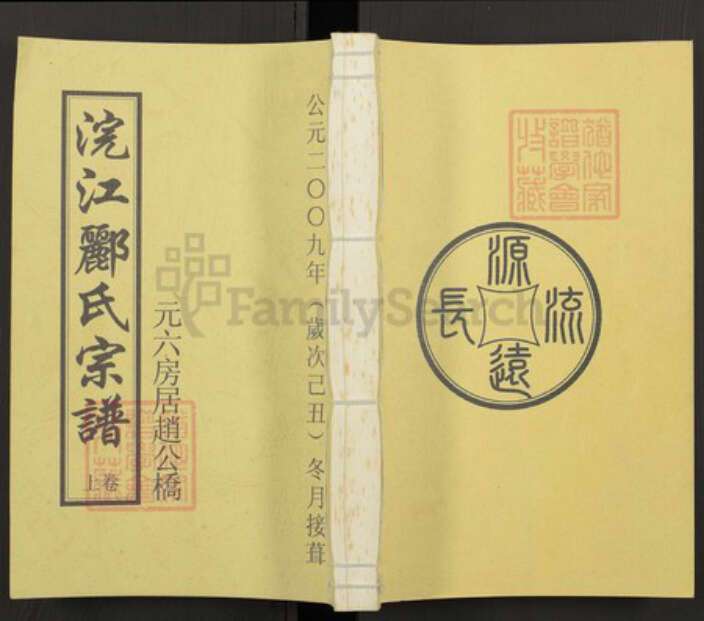 浣江酈氏宗譜
上卷
元六房居趙公橋
公元二〇〇九年(歲次己丑)冬月接葺
源遠流長
譜學會
收藏
FamilySearch